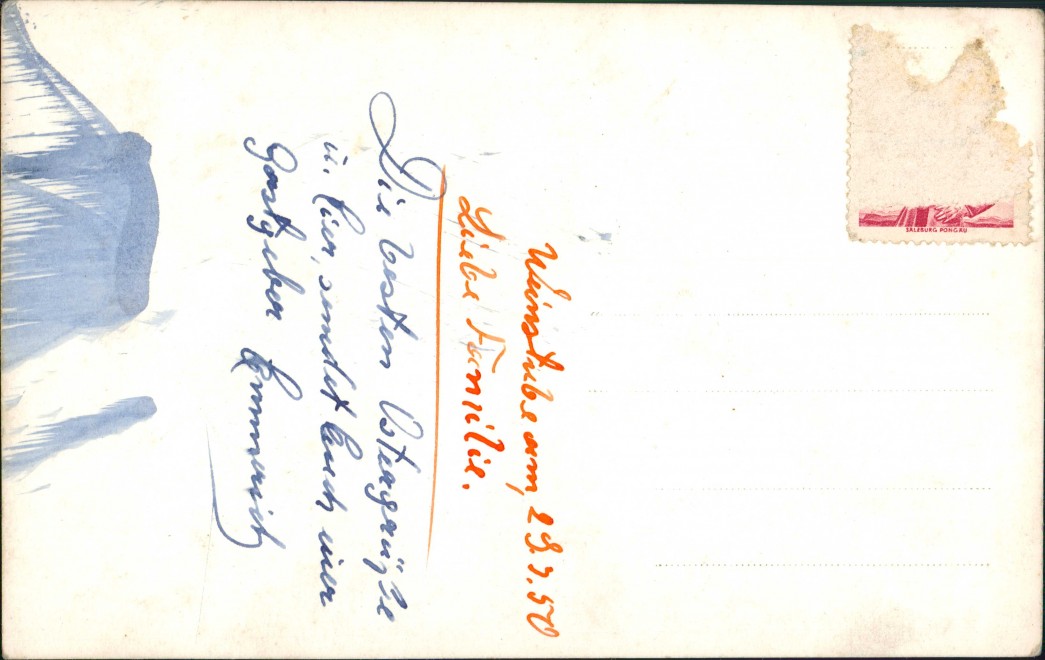 Weinstube am, 29.3.50
Liebe Familie.
Die besten Ostergrüße
u. hier, sendet Euch euer
Gastgeber Emmerich
SALZBURG PONGAU